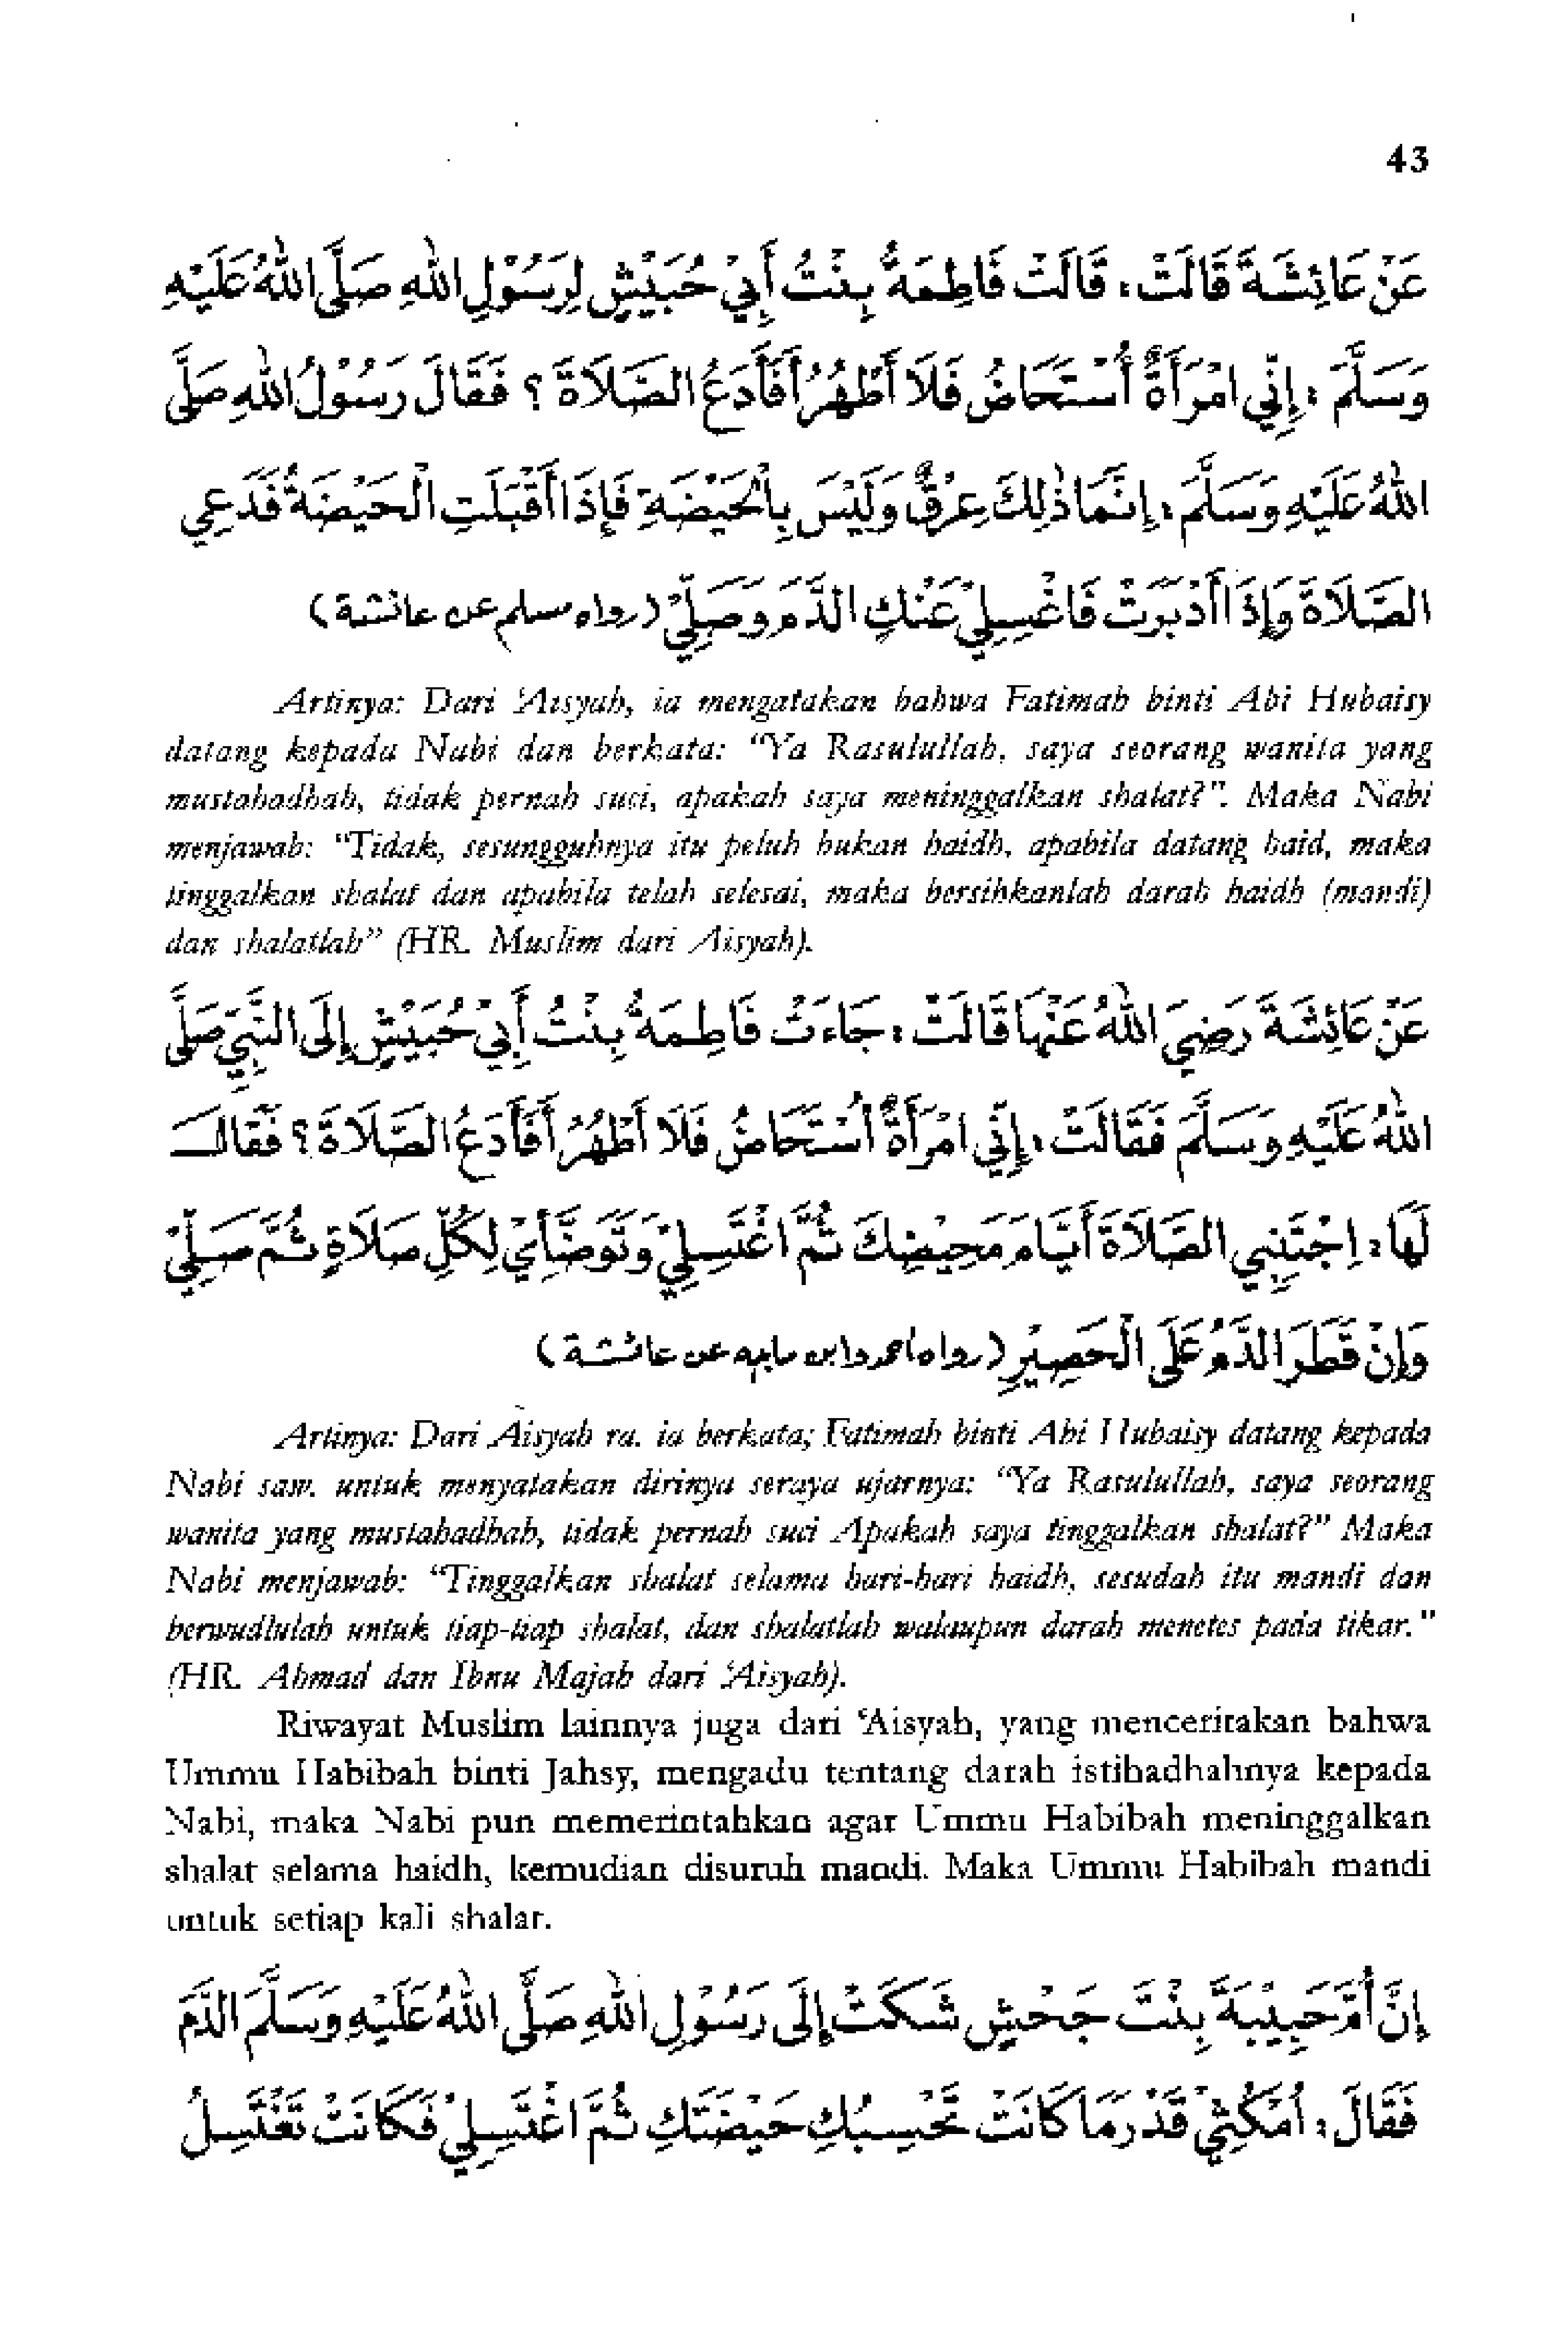 43
عَنْ عَائِشَةَ قَالَتْ، قَالَتْ فَاطِمَةُ بِنْتُ أَبِيْ حُبَيْشٍ لِرَسُوْلِ اللهِ صَلَّى اللهُ عَلَيْهِ
وَسَلَّمَ، إِنِّي امْرَأَةٌ أُسْتَحَاضُ فَلَا أَطْهُرُ أَفَأَدَعُ الصَّلَاةَ؟ فَقَالَ رَسُوْلُ اللهِ صَلَّى
اللهُ عَلَيْهِ وَسَلَّمَ، إِنَّمَا ذٰلِكَ عِرْقٌ وَلَيْسَ بِالْحَيْضَةِ فَإِذَا أَقْبَلَتِ الْحَيْضَةُ فَدَعِي
الصَّلَاةَ وَإِذَا أَدْبَرَتْ فَاغْسِلِيْ عَنْكِ الدَّمَ وَصَلِّيْ (رواه مسلم عن عائشة)
Artinya: Dari 'Aisyah, ia mengatakan bahwa Fatimah binti Abi Hubaisy
datang kepada Nabi dan berkata: "Ya Rasulullah, saya seorang wanita yang
mustahadhah, tidak pernah suci, apakah saya meninggalkan shalat?". Maka Nabi
menjawab: "Tidak, sesungguhnya itu peluh bukan haidh, apabila datang haid, maka
tinggalkan shalat dan apabila telah selesai, maka bersihkanlah darah haidh (mandi)
dan shalatlah" (HR. Muslim dari Aisyah).
عَنْ عَائِشَةَ رَضِيَ اللهُ عَنْهَا قَالَتْ، جَاءَتْ فَاطِمَةُ بِنْتُ أَبِيْ حُبَيْشٍ إِلَى النَّبِيِّ صَلَّى
اللهُ عَلَيْهِ وَسَلَّمَ فَقَالَتْ، إِنِّي امْرَأَةٌ أُسْتَحَاضُ فَلَا أَطْهُرُ أَفَأَدَعُ الصَّلَاةَ؟ فَقَالَ
لَهَا، اِجْتَنِبِي الصَّلَاةَ أَيَّامَ مَحِيْضِكَ ثُمَّ اغْتَسِلِيْ وَتَوَضَّأِيْ لِكُلِّ صَلَاةٍ ثُمَّ صَلِّيْ
وَإِنْ قَطَرَ الدَّمُ عَلَى الْحَصِيْرِ (رواه أحمد وابن ماجه عن عائشة)
Artinya: Dari Aisyah ra. ia berkata; Fatimah binti Abi Hubaisy datang kepada
Nabi saw. untuk menyatakan dirinya seraya ujarnya: "Ya Rasulullah, saya seorang
wanita yang mustahadhah, tidak pernah suci Apakah saya tinggalkan shalat?" Maka
Nabi menjawab: "Tinggalkan shalat selama hari-hari haidh, sesudah itu mandi dan
berwudlulah untuk tiap-tiap shalat, dan shalatlah walaupun darah menetes pada tikar."
(HR. Ahmad dan Ibnu Majah dari 'Aisyah).
Riwayat Muslim lainnya juga dari 'Aisyah, yang menceritakan bahwa
Ummu Habibah binti Jahsy, mengadu tentang darah istihadhahnya kepada
Nabi, maka Nabi pun memerintahkan agar Ummu Habibah meninggalkan
shalat selama haidh, kemudian disuruh mandi. Maka Ummu Habibah mandi
untuk setiap kali shalat.
إِنَّ أُمَّ حَبِيْبَةَ بِنْتَ جَحْشٍ شَكَتْ إِلَى رَسُوْلِ اللهِ صَلَّى اللهُ عَلَيْهِ وَسَلَّمَ الدَّمَ
فَقَالَ، أُمْكُثِيْ قَدْرَ مَا كَانَتْ تَحْسِبُكِ حَيْضَتَكِ ثُمَّ اغْتَسِلِيْ فَكَانَتْ تَغْتَسِلُ